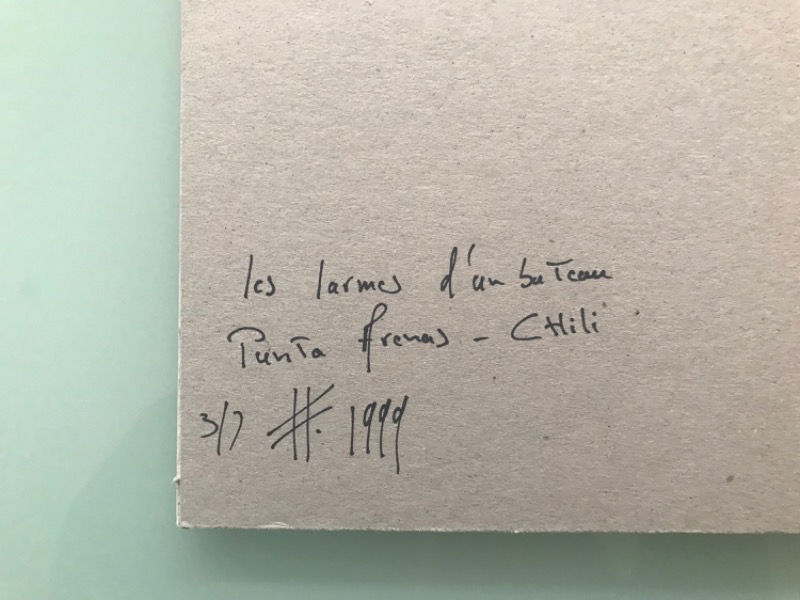 les larmes d'un bateau
Punta Arenas - CHili
3/7 H. 1999